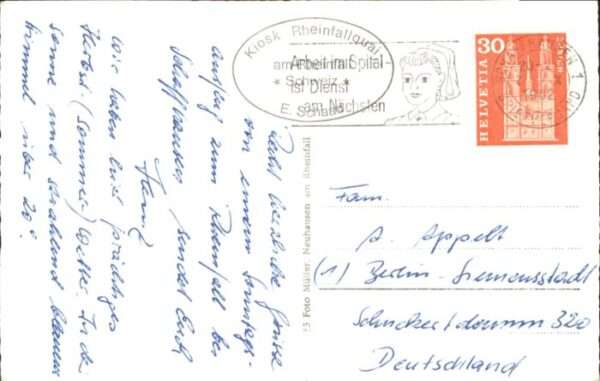 Recht herzliche Grüße
von einem Sonntags-
ausflug zum Rheinfall bei
Schaffhausen sendet Euch
Franz
Wir haben hier prächtiges
Herbst (Sommer) Wetter. In der
Sonne und strahlend blauem
Himmel über 20°.
Kiosk Rheinfallquai
am Rheinfall
* Schweiz *
E. Schaad
Arbeit im Spital
ist Dienst
am Nächsten
HELVETIA
30
Foto Müller, Neuhausen am Rheinfall
Fam.
A. Appelt
(1) Berlin-Siemensstadt
Schuckertdamm 320
Deutschland